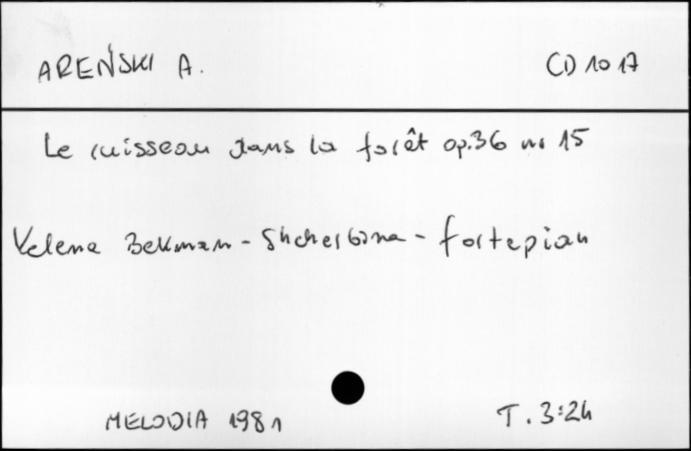 AREŃSKI A. CD 1017
Le ruisseau dans la forêt op.36 nr 15
Yelena Bekman-Shcherbina - fortepian
MELODIA 1981 T. 3:24